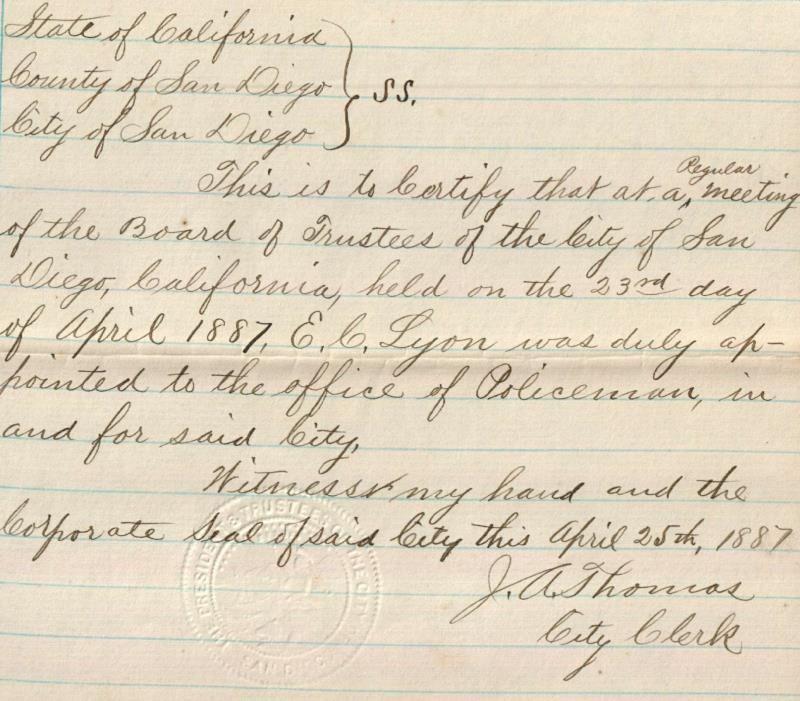 State of California
County of San Diego } SS.
City of San Diego
This is to Certify that at a Regular meeting
of the Board of Trustees of the City of San
Diego, California, held on the 23rd day
of April 1887, E. C. Lyon was duly ap-
pointed to the office of Policeman, in
and for said City.
Witness my hand and the
Corporate Seal of said City this April 25th, 1887
J. A. Thomas
City Clerk
PRESIDENT & TRUSTEES OF THE CITY
SAN DIEGO